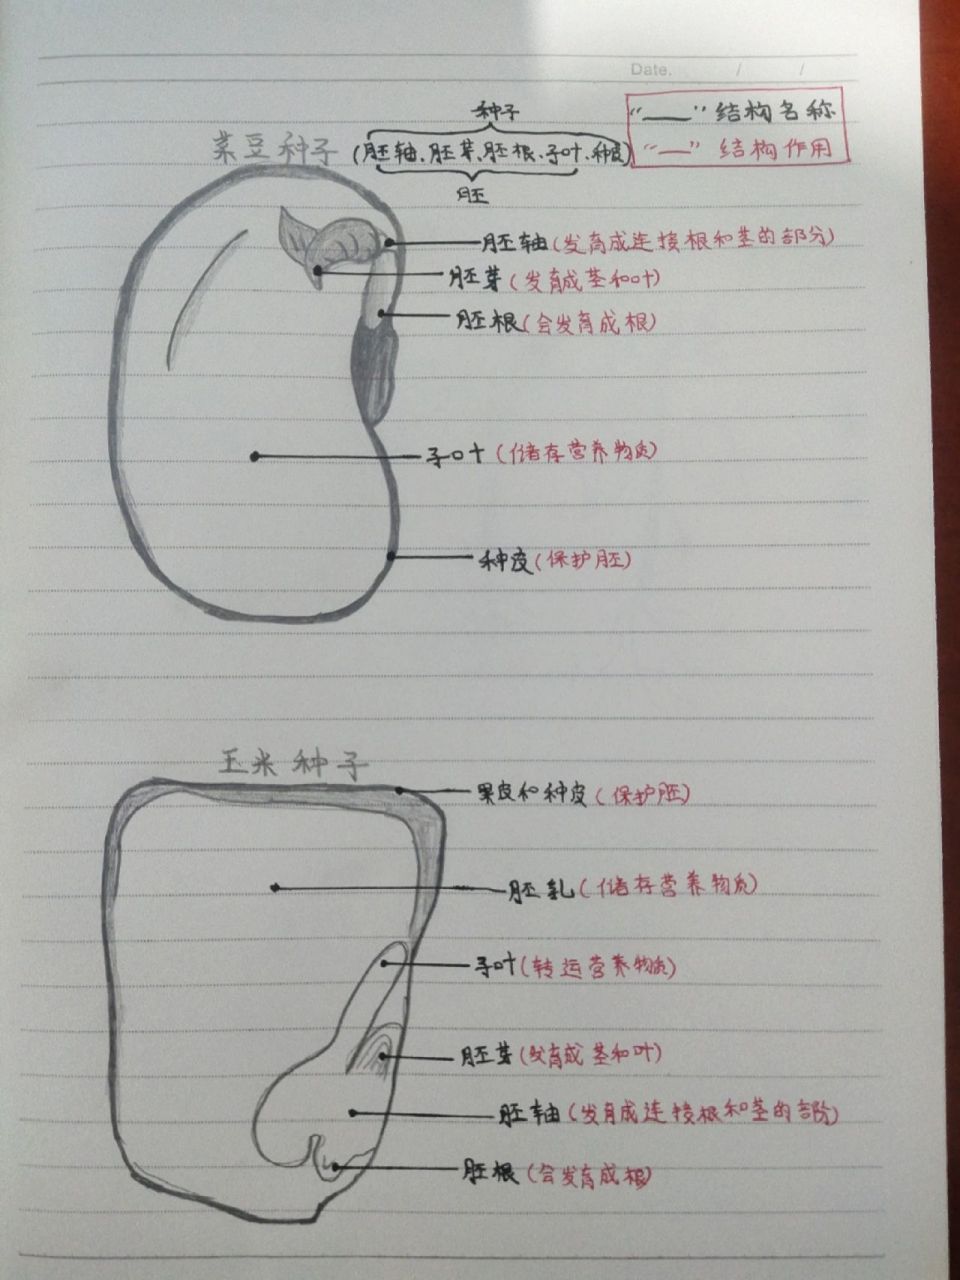 Date. / /
种子
“——”结构名称
菜豆种子 (胚轴、胚芽、胚根、子叶、种皮)
“—”结构作用
胚
胚轴(发育成连接根和茎的部分)
胚芽(发育成茎和叶)
胚根(会发育成根)
子叶(储存营养物质)
种皮(保护胚)
玉米种子
果皮和种皮(保护胚)
胚乳(储存营养物质)
子叶(转运营养物质)
胚芽(发育成茎和叶)
胚轴(发育成连接根和茎的部分)
胚根(会发育成根)